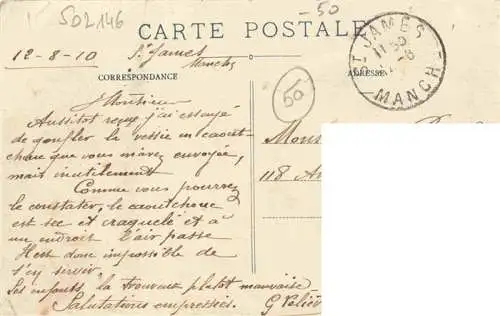 502146
-50
CARTE POSTALE
12-8-10 St James
Manche
CORRESPONDANCE
ADRESSE
ST JAMES
11 30
MANCHE
50
Monsieur
Aussitot reçu j'ai essayé
de gonfler la vessie en caout-
chouc que vous m'avez envoyée,
mais inutilement
Comme vous pourrez
le constater, le caoutchouc
est sec et craquelé et à
un endroit l'air passe
Il est donc impossible de
s'en servir.
Les enfants la trouvent plutot mauvaise
Salutations empressées.
Mons
118 A